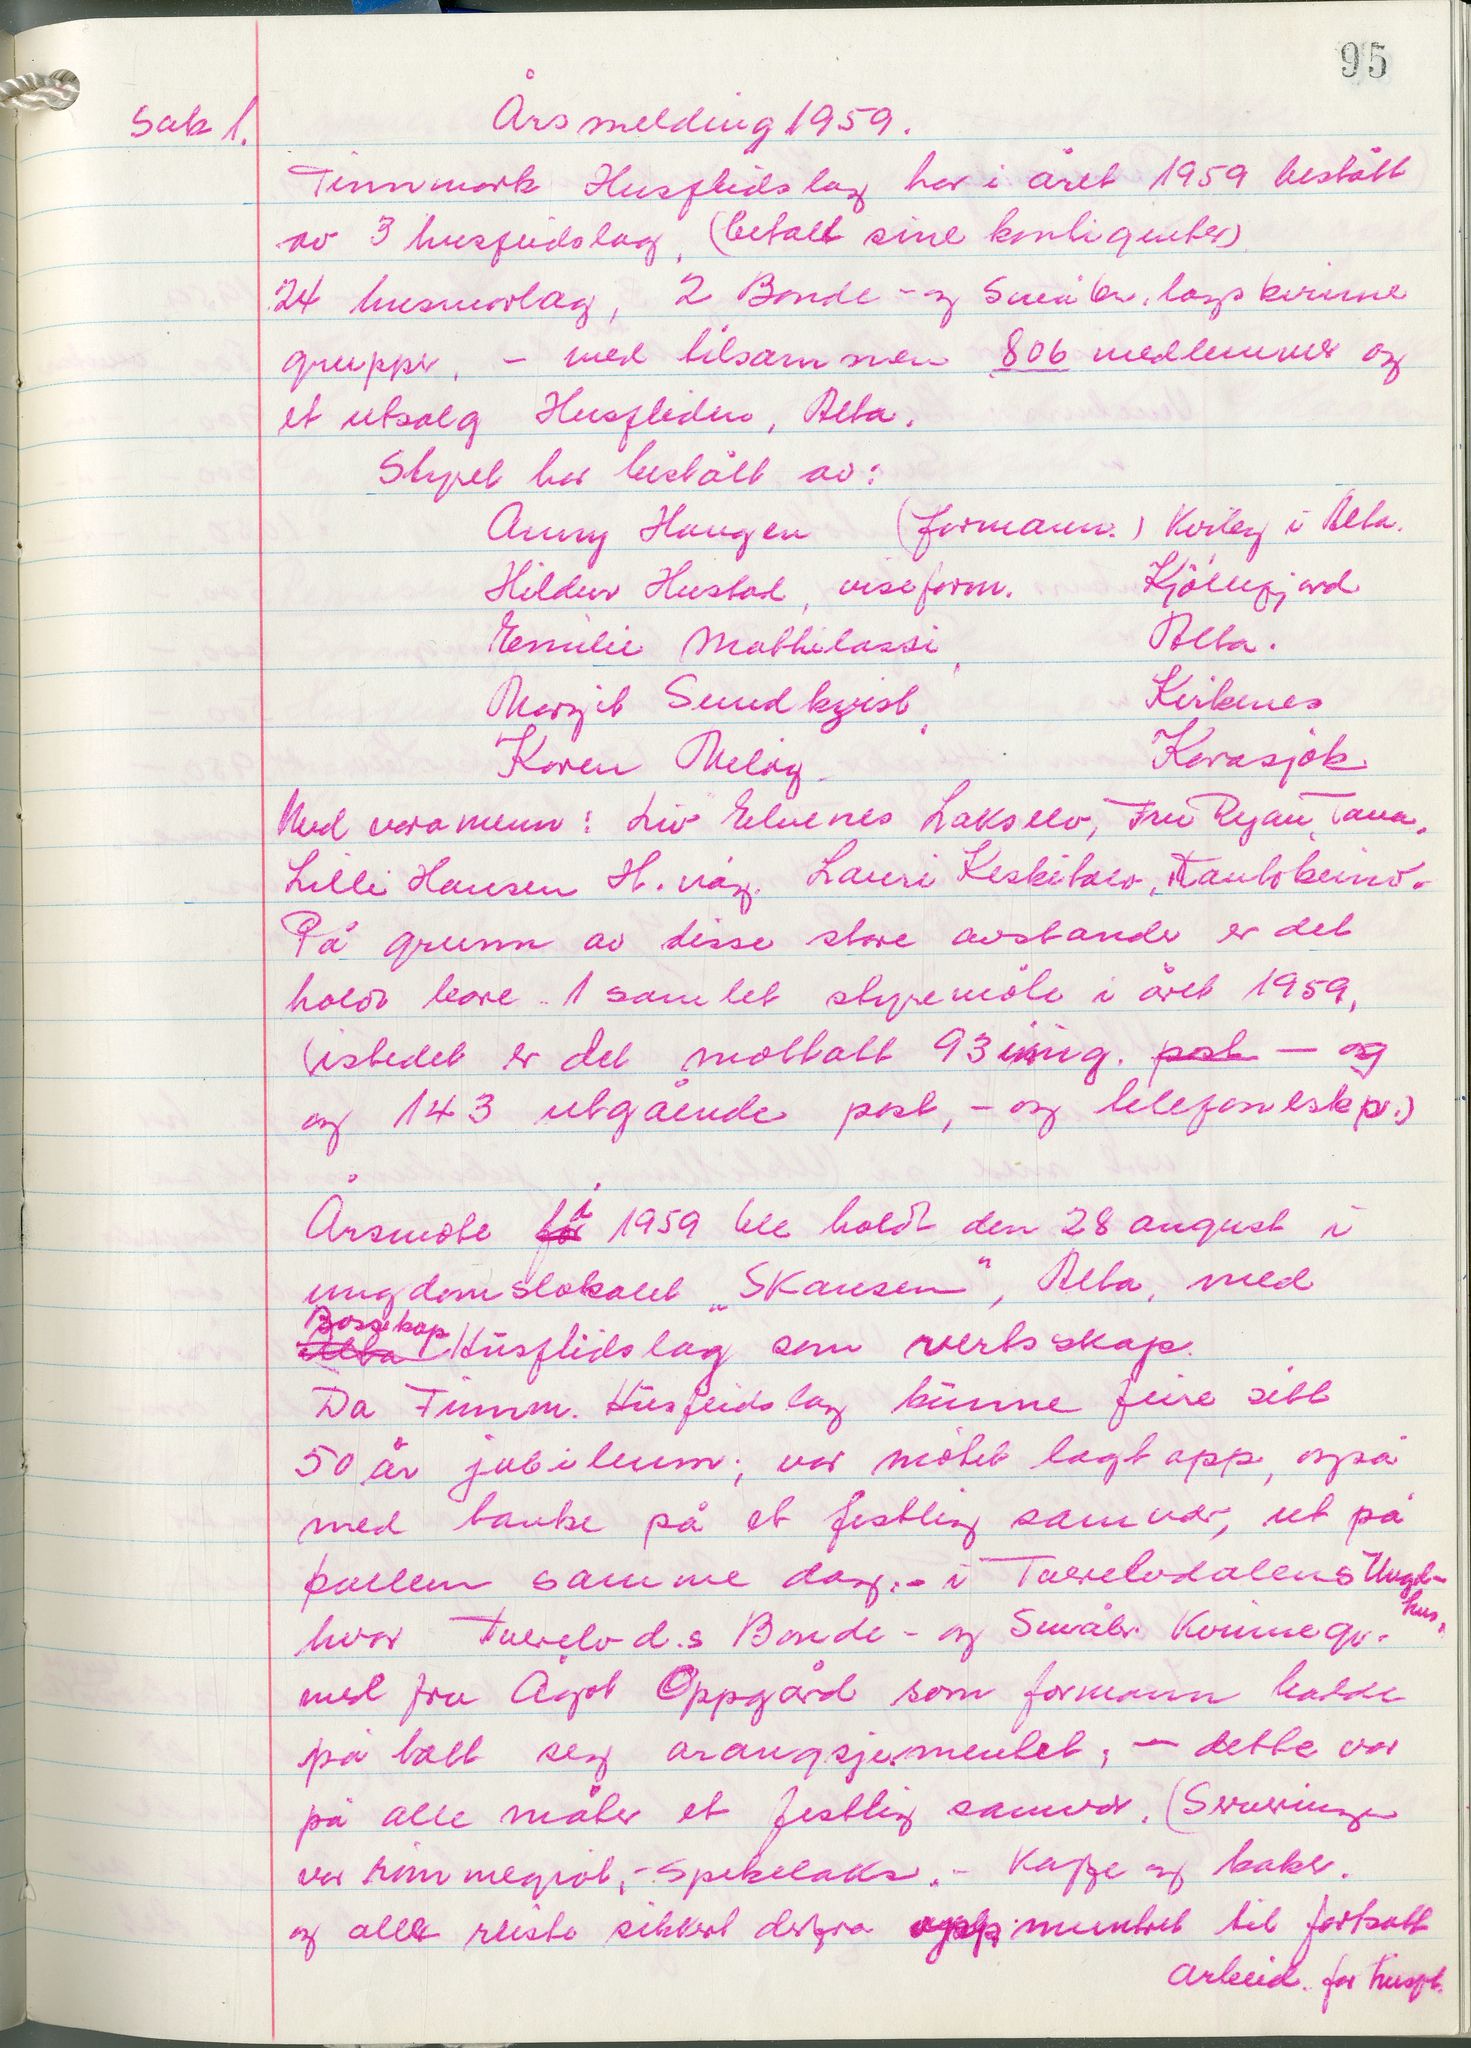 95
Sak 1. Årsmelding 1959.
Finnmark Husflidslag har i året 1959 bestått
av 3 husflidslag, (betalt sine kontigenter)
24 husmorlag, 2 Bonde- og Småbr. lags kvinne
grupper, - med tilsammen 806 medlemmer og
et utsalg Husfliden, Alta.
Styret har bestått av:
Anny Haugen (formann.) Kviby i Alta.
Hildur Hustad, viseform. Kjöllefjord
Emilie Mathilassi, Alta.
Margit Sundkvist, Kirkenes
Karen Meløy Karasjok
Med varamenn: Liv Elvenes Lakselv, Fru Ryan, Tana,
Lilli Hansen H.våg. Lauri Keskitalo, Kautokeino.
På grunn av disse store avstander er det
holdt bare 1 samlet styremöte i året 1959,
(istedet er det mottatt 93 inng. post - og
og 143 utgående post, - og telefonekspr.)
Årsmöte för i 1959 ble holdt den 28 august i
ungdomslokalet "Skansen", Alta, med
Bossekop
Alta Husflidslag som vertsskap.
Da Finnm. Husflidslag kunne feire sitt
50 år jubileum, var mötet lagt opp, også
med tanke på et festlig samvær, ut på
kvellen samme dag, - i Tverelvdalens Ungd-
hus,
hvor Tverelvd.s Bonde- og Småbr. Kvinnegr.
med fru Ågot Oppgård som formann hadde
på tatt seg arangsjementet, - dette var
på alle måter et festlig samvær. (Serveringen
var römmegröt, - Spekelaks, - Kaffe og kaker.
og alle reiste sikkert derfra opp muntret til fortsatt
arbeid. for husfl.